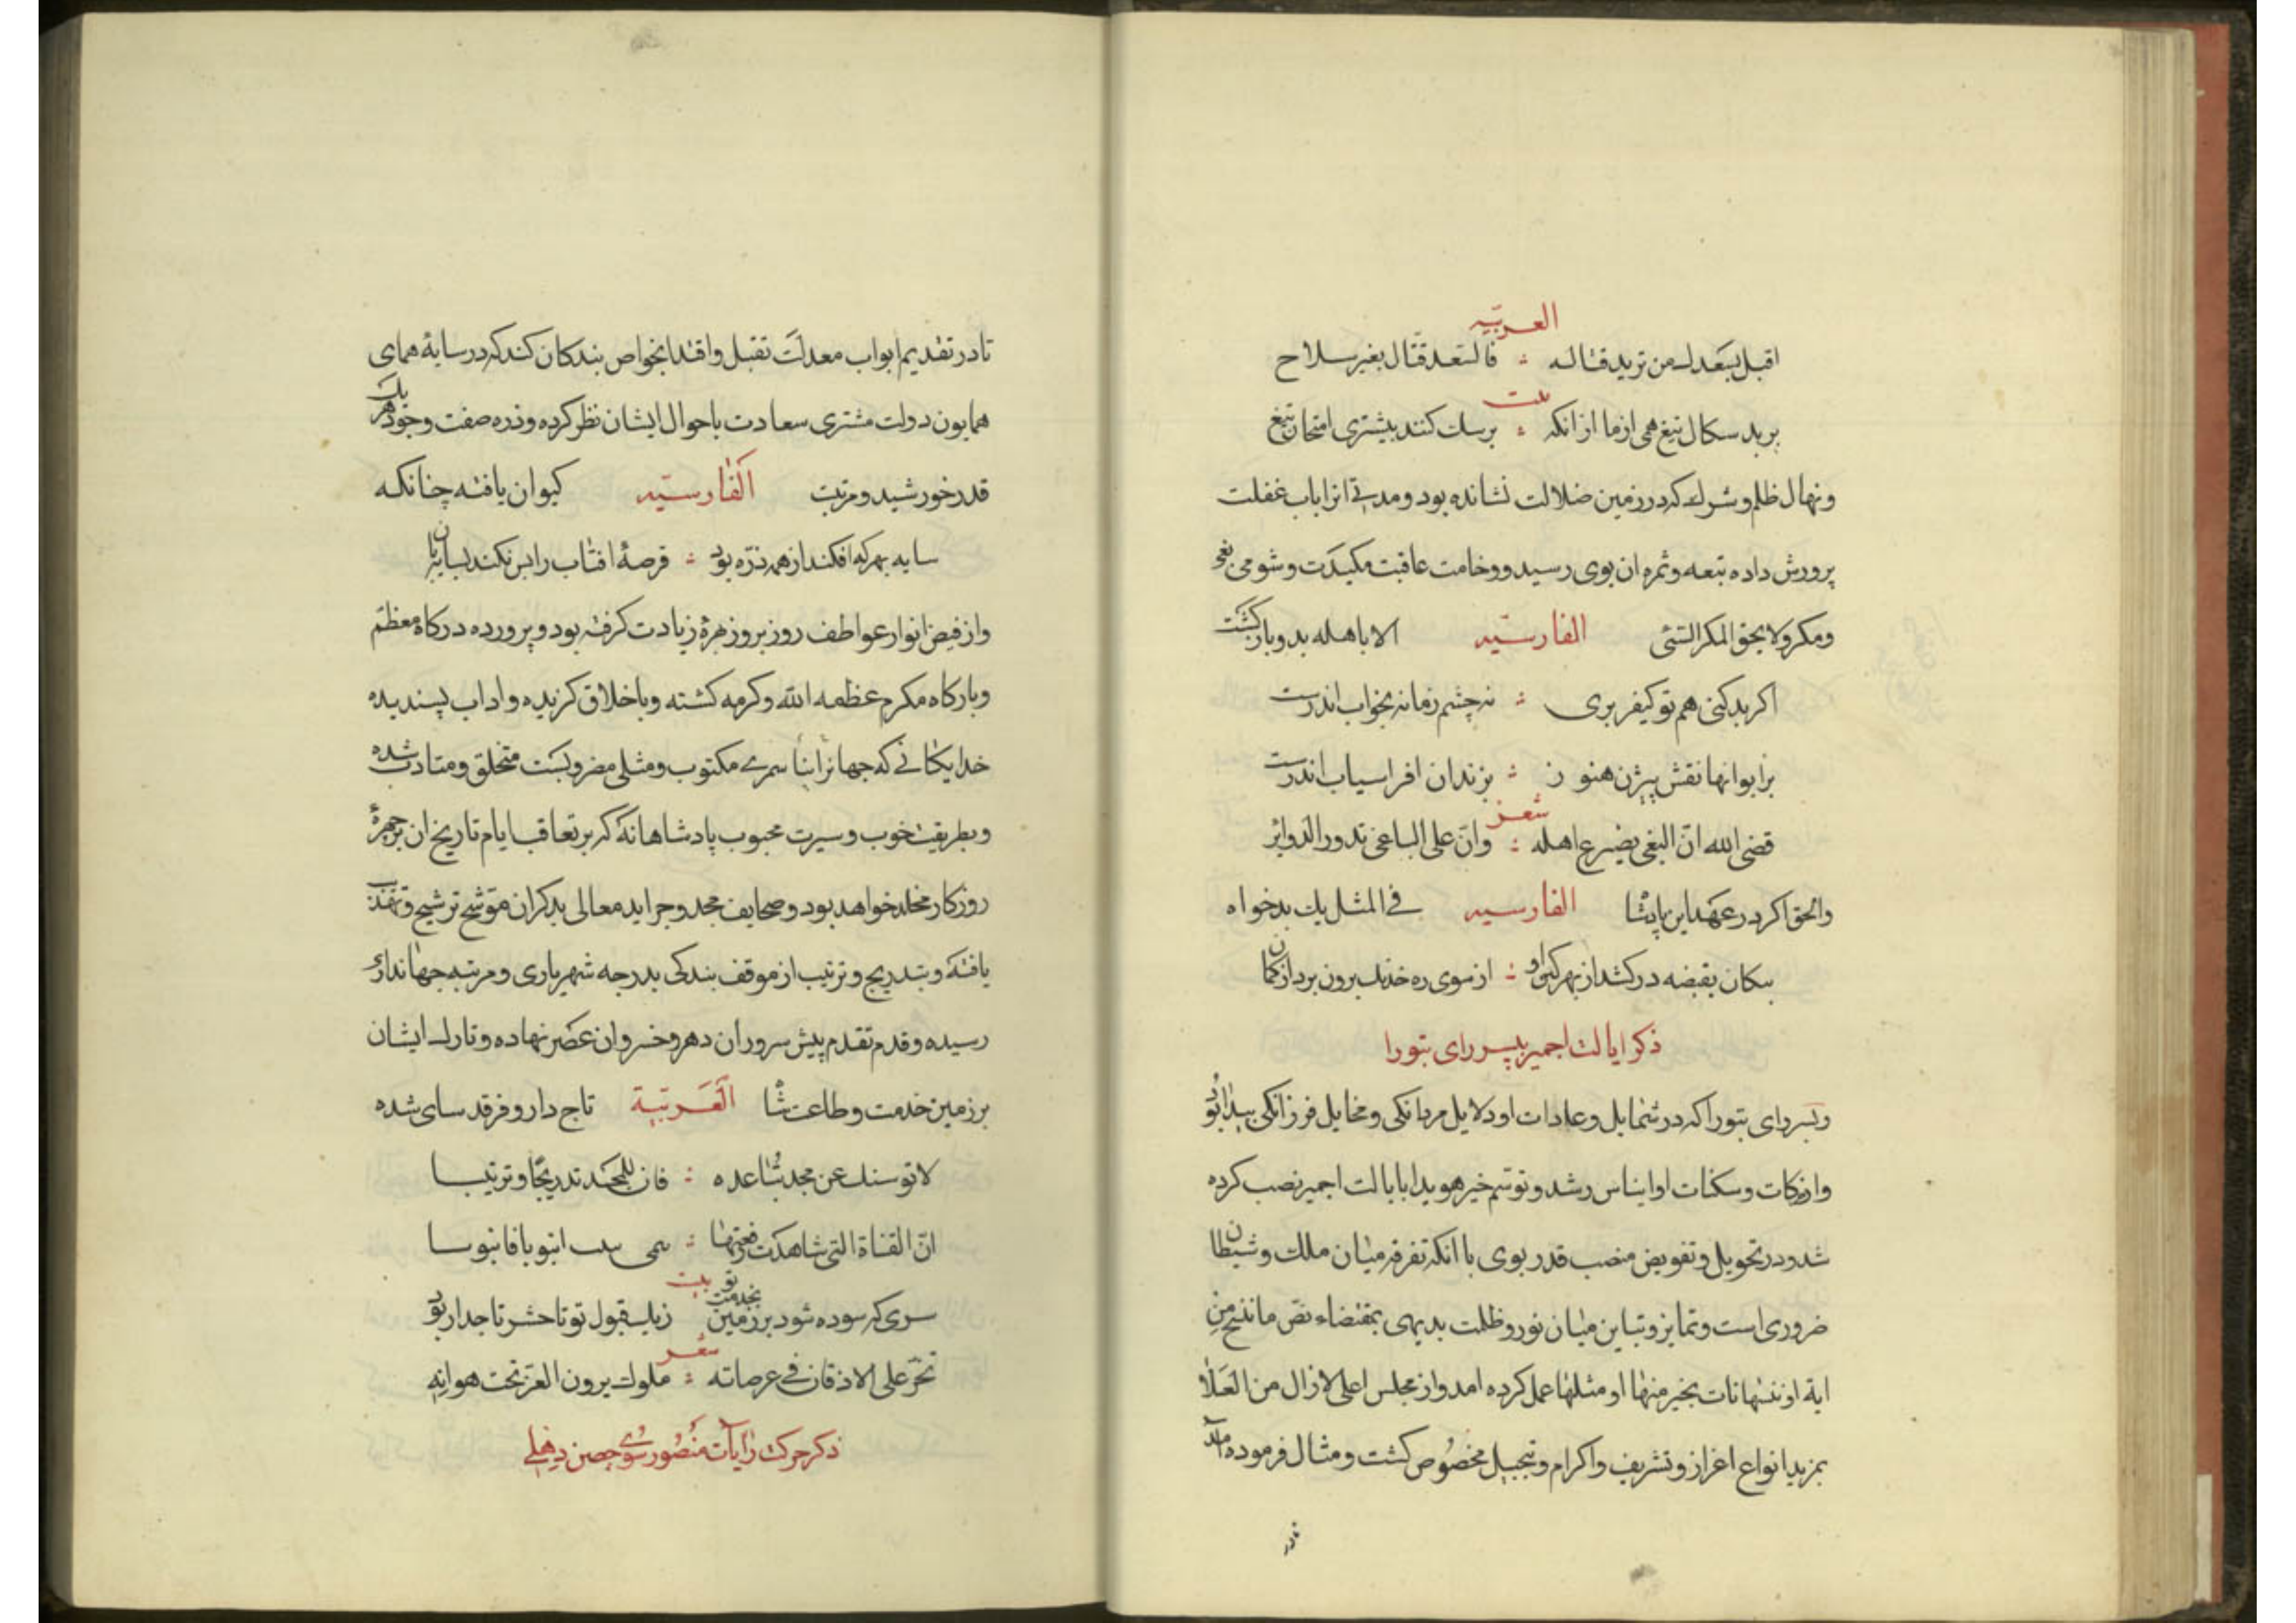 العربیّه
اقبل بسعدك من ترید قتاله ∴ فالسعد قتّال بغیر سلاح
بیت
بر بد سکال تیغ همی ازما از انکه ∴ برسك کنند بیشتری امتحان تیغ
ونهال ظلم وشرك که در زمین ضلالت نشانده بود و مدتی انرا باب غفلت
پرورش داده تبعه وثمره ان بوی رسید و وخامت عاقبت مکیدت وشومی بغی
ومکر ولا یحیق المکر السّیّئ الفارسیّه الا باهله بدو باز کشت
اکر بد کنی هم تو کیفر بری ∴ نه چشم زمانه بخواب اندرست
بر ایوانها نقش بیژن هنوز ∴ بزندان افراسیاب اندرست
شعر
قضی الله انّ البغی یصرع اهله ∴ وانّ علی الباغی تدور الدوایر
والحق اکر در عهد این پادشا الفارسیه فی المثل یك بدخواه
پیکان بقبضه در کشد از بهر کین او ∴ از سوی ره خدنك برون پرد از کمان
ذکر ایالت اجمیر بپسر رای بتورا
وپسر رای بتورا که در شمایل وعادات او دلایل مردانکی و مخایل فرزانکی پیدا بود
واز حرکات وسکنات او ایناس رشد وتوسّم خیر هویدا بایالت اجمیر نصب کرده
شد و در تحویل وتفویض منصب قدر بوی با انکه تفرقه میان ملك وشیطان
ضروری است وتمایز وتباین میان نور وظلمت بدیهی بمقتضاء نصّ ما ننسخ من
ایة او ننسها نات بخیر منها او مثلها عمل کرده امد و از مجلس اعلی لازال من العلا
بمزید انواع اعزاز وتشریف واکرام وتبجیل مخصوص کشت ومثال فرموده آمد
تا در
تا در تقدیم ابواب معدلت تقبل واقتدا بخواص بندکان کند که در سایهٔ همای
همایون دولت مشتری سعادت باحوال ایشان نظر کرده وذره صفت وجود هر یك
قدر خورشید ومرتبت الفارسیّه کیوان یافته چنانکه
سایه بهر که افکند از همه ذرّه بود ∴ قرصهٔ افتاب را بس نکند بسایه بان
واز فیض انوار عواطف روز بروز بهرهٔ زیادت کرفته بود وپرورده درکاه معظم
وبارکاه مکرم عظمه الله وکرمه کشته وباخلاق کزیده واداب پسندیده
خدایکانی که جهانرا بنا سمری مکتوب ومثلی مضروبست متخلق ومتادب شده
وبطریقت خوب وسیرت محبوب پادشاهانهٔ که بر تعاقب ایام تاریخ ان بر چهرهٔ
روزکار مخلد خواهد بود وصحایف مجد وجراید معالی بذکر ان موشّح ترشیح وتهذیب
یافته وبتدریج وترتیب از موقف بندکی بدرجه شهریاری ومرتبه جهانداری
رسیده وقدم تقدم پیش سروران دهر وخسروان عصر نهاده وتارك ایشان
بر زمین خدمت وطاعت شا العربیّة تاج دار وفرقد سای شده
لا توسنك عن مجد تباعده ∴ فان للمجد تدریجا وترتیبا
انّ القناة التی شاهدت رفعتها ∴ انبوبا فانبوبا
بیت
سری که سوده شود بر زمین بخدمت تو زیك قبول تو تا حشر تاجدار بود
شعر
تخرّ علی الاذقان فی عرصاته ∴ ملوك یرون العزّ تحت هوانه
ذکر حرکت رایات منصور سوی حصن دهلی